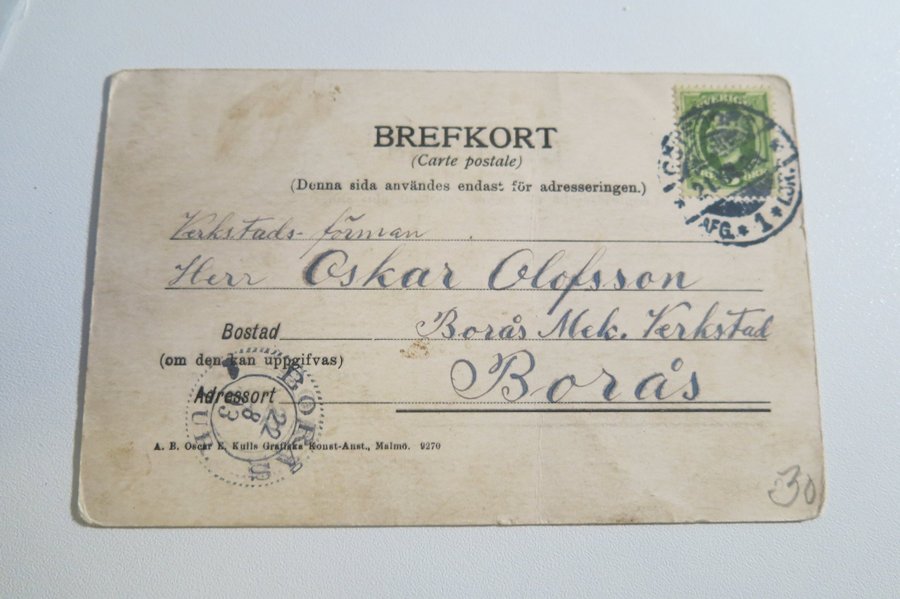 BREFKORT
(Carte postale)
(Denna sida användes endast för adresseringen.)
SVERIGE
AFG. * 1 * LBR.
Verkstads-förman
Herr Oskar Olofsson
Bostad Borås Mek. Verkstad
(om den kan uppgifvas)
Adressort Borås
BORÅS
22
8
3
A. B. Oscar E. Kulls Grafiska Konst-Anst., Malmö. 9270
30